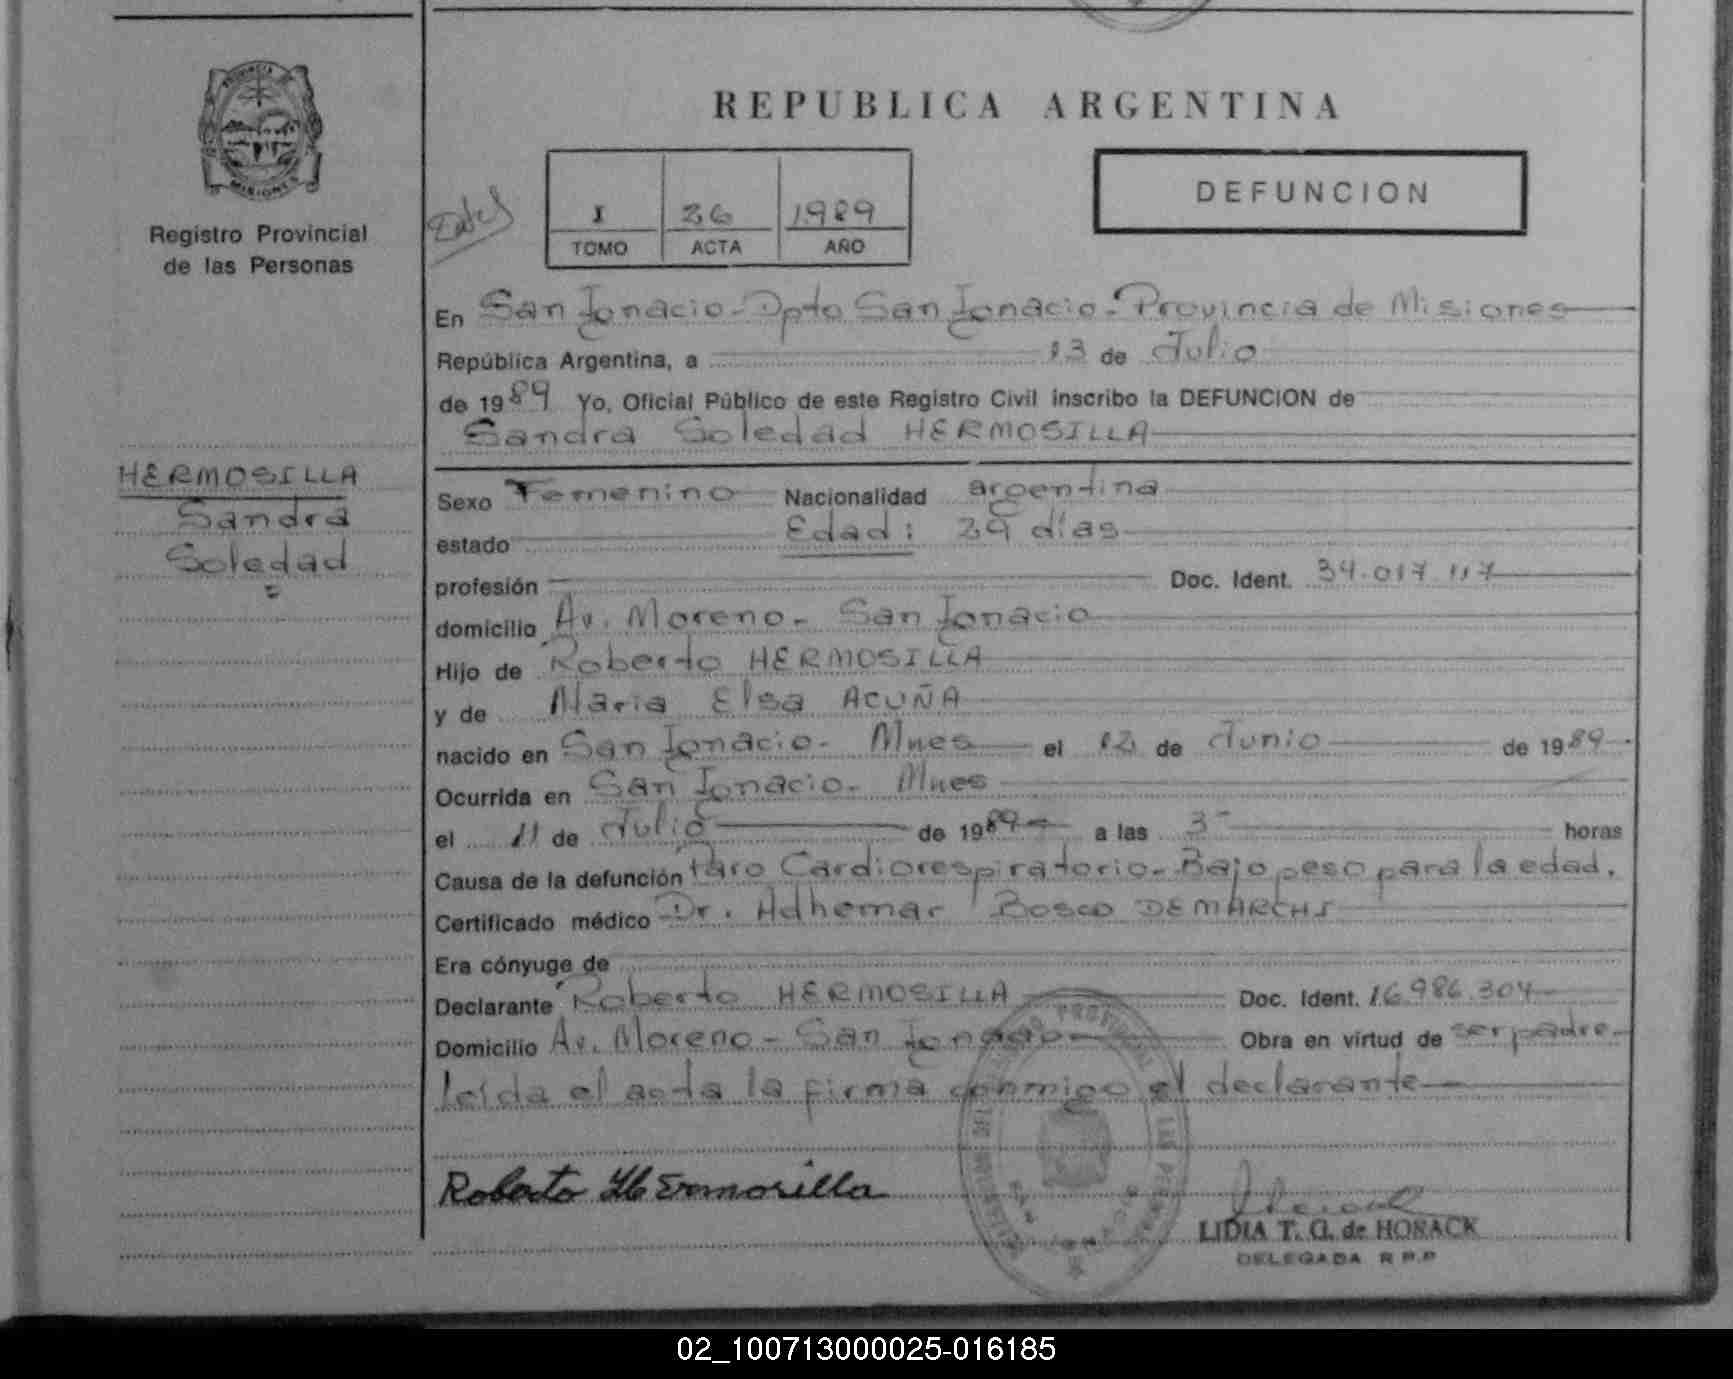 REPUBLICA ARGENTINA
PROVINCIA DE
MISIONES
Registro Provincial
de las Personas
I 36 1989
TOMO ACTA AÑO
DEFUNCION
En San Ignacio - Dpto San Ignacio - Provincia de Misiones
República Argentina, a 13 de Julio
de 1989 Yo, Oficial Público de este Registro Civil inscribo la DEFUNCION de
Sandra Soledad HERMOSILLA
HERMOSILLA
Sandra
Soledad
Sexo Femenino Nacionalidad argentina
estado Edad: 29 días
profesión Doc. Ident. 34.017.117
domicilio Av. Moreno - San Ignacio
Hijo de Roberto HERMOSILLA
y de Maria Elsa ACUÑA
nacido en San Ignacio - Mnes el 12 de Junio de 1989
Ocurrida en San Ignacio - Mnes
el 11 de Julio de 1989 a las 3 horas
Causa de la defunción Paro Cardiorespiratorio - Bajo peso para la edad.
Certificado médico Dr. Adhemar Bosco DEMARCHI
Era cónyuge de
Declarante Roberto HERMOSILLA Doc. Ident. 16.986.304
Domicilio Av. Moreno - San Ignacio Obra en virtud de ser padre
leída el acta la firma conmigo el declarante
Roberto Hermosilla
LIDIA T. G. de HORACK
DELEGADA R.P.P
02_100713000025-016185